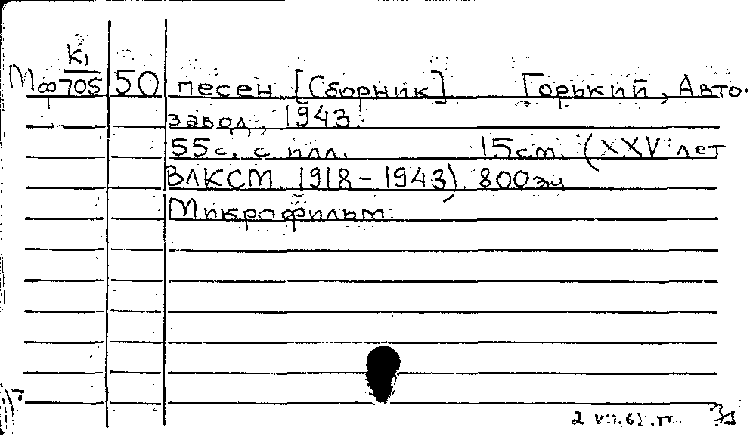 К1
Мф 705 50 песен [Сборник] Горький, Авто-
завод, 1943.
55 с. с илл. 15 см. (XXV лет
ВЛКСМ 1918-1943). 800 эк
Микрофильм